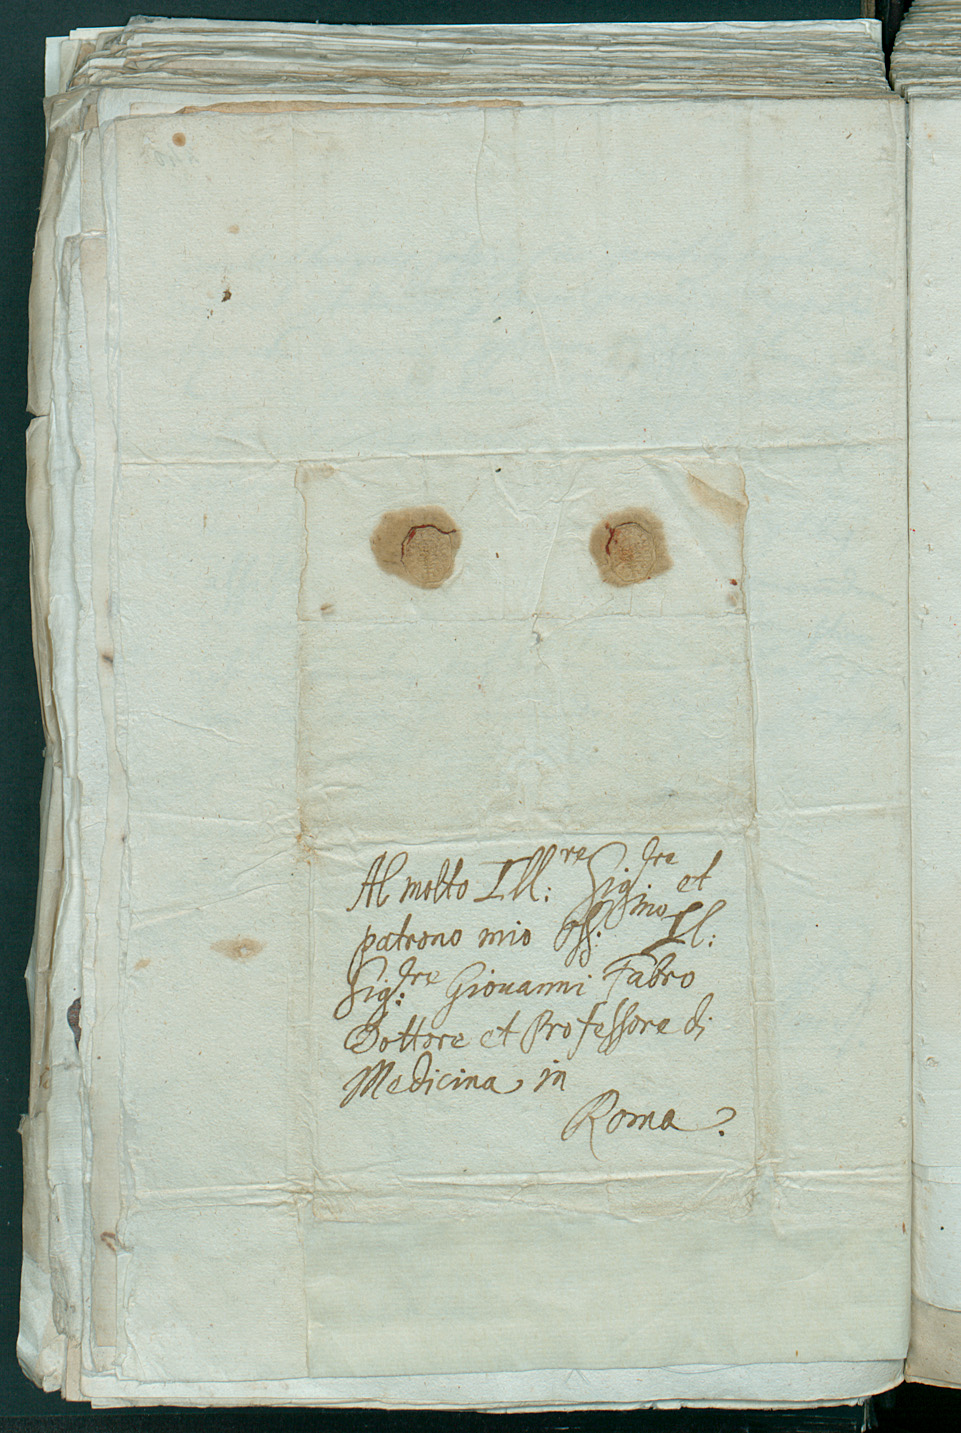 Al molto Ill:re Sig:re et
patrono mio Oss:mo Il
Sig:re Giovanni Fabro
Dottore et Professore di
Medicina in
Roma